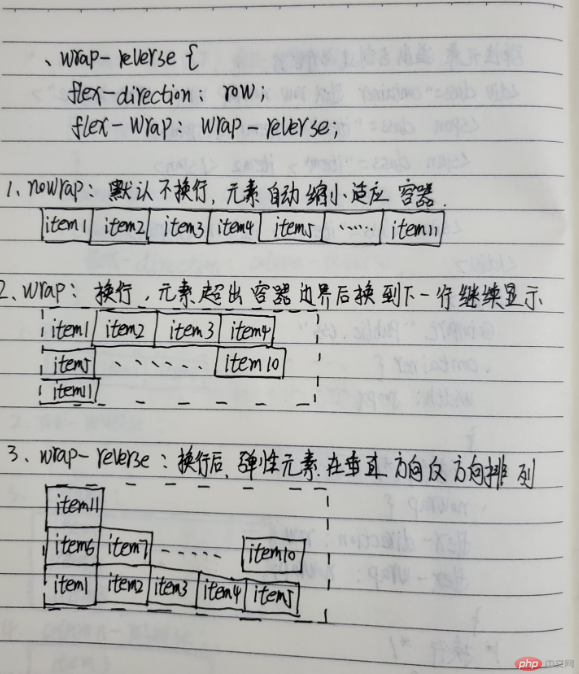 、wrap-reverse {
flex-direction: row;
flex-wrap: wrap-reverse;
1. nowrap: 默认不换行, 元素自动缩小适应容器.
item1 item2 item3 item4 item5 ...... item11
2. wrap: 换行, 元素超出容器边界后换到下一行继续显示
item1 item2 item3 item4
item5 ....... item10
item11
3、wrap-reverse: 换行后, 弹性元素在垂直方向反方向排列
item11
item6 item7 ...... item10
item1 item2 item3 item4 item5
php 中文网